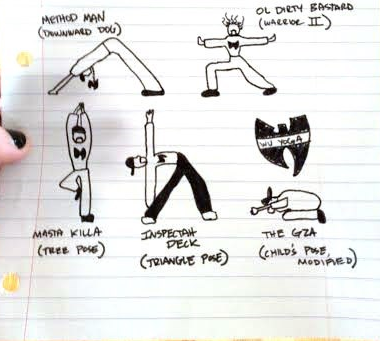 METHOD MAN
(DOWNWARD DOG)
OL DIRTY BASTARD
(WARRIOR II)
WU YOGA
MASTA KILLA
(TREE POSE)
INSPECTAH
DECK
(TRIANGLE POSE)
THE GZA
(CHILD'S POSE,
MODIFIED)